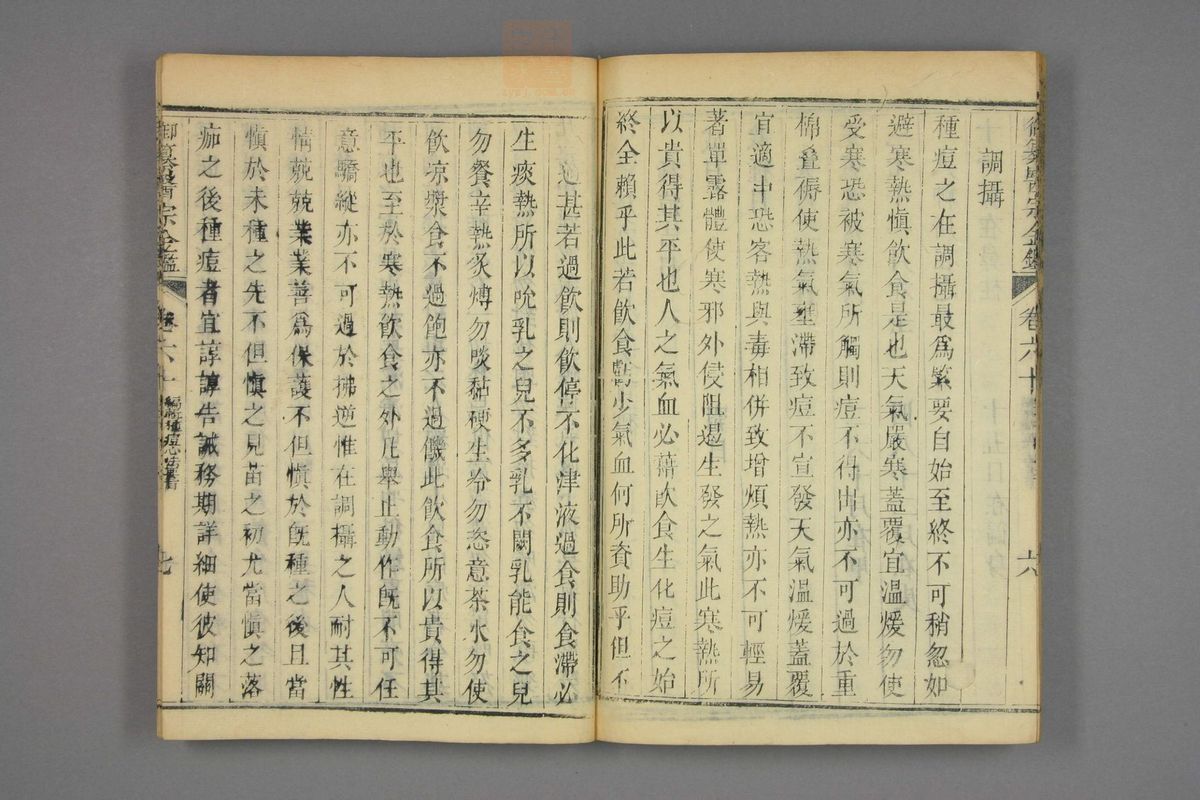 御纂醫宗金鑑 卷六十 六
調攝
種痘之在調攝最爲緊要自始至終不可稍忽如
避寒熱慎飲食是也天氣嚴寒蓋覆宜溫煖勿使
受寒恐被寒氣所觸則痘不得出亦不可過於重
棉疊褥使熱氣壅滯致痘不宣發天氣溫煖蓋覆
宜適中恐客熱與毒相併致增煩熱亦不可輕易
著單露體使寒邪外侵阻遏生發之氣此寒熱所
以貴得其平也人之氣血必藉飲食生化痘之始
終全賴乎此若飲食虧少氣血何所資助乎但不
過甚若過飲則飲停不化津液過食則食滯必
生痰熱所以吮乳之兒不多乳不闕乳能食之兒
勿餐辛熱炙煿勿啖黏硬生冷勿恣意茶水勿使
飲凉漿食不過飽亦不過饑此飲食所以貴得其
平也至於寒熱飲食之外凡舉止動作旣不可任
意驕縱亦不可過於拂逆惟在調攝之人耐其性
情兢兢業業善爲保護不但愼於旣種之後且當
愼於未種之先不但愼之見苗之初尤當愼之落
痂之後種痘者宜諄諄告誡務期詳細使彼知關
御纂醫宗金鑑 卷六十 編輯種痘心法要旨 七